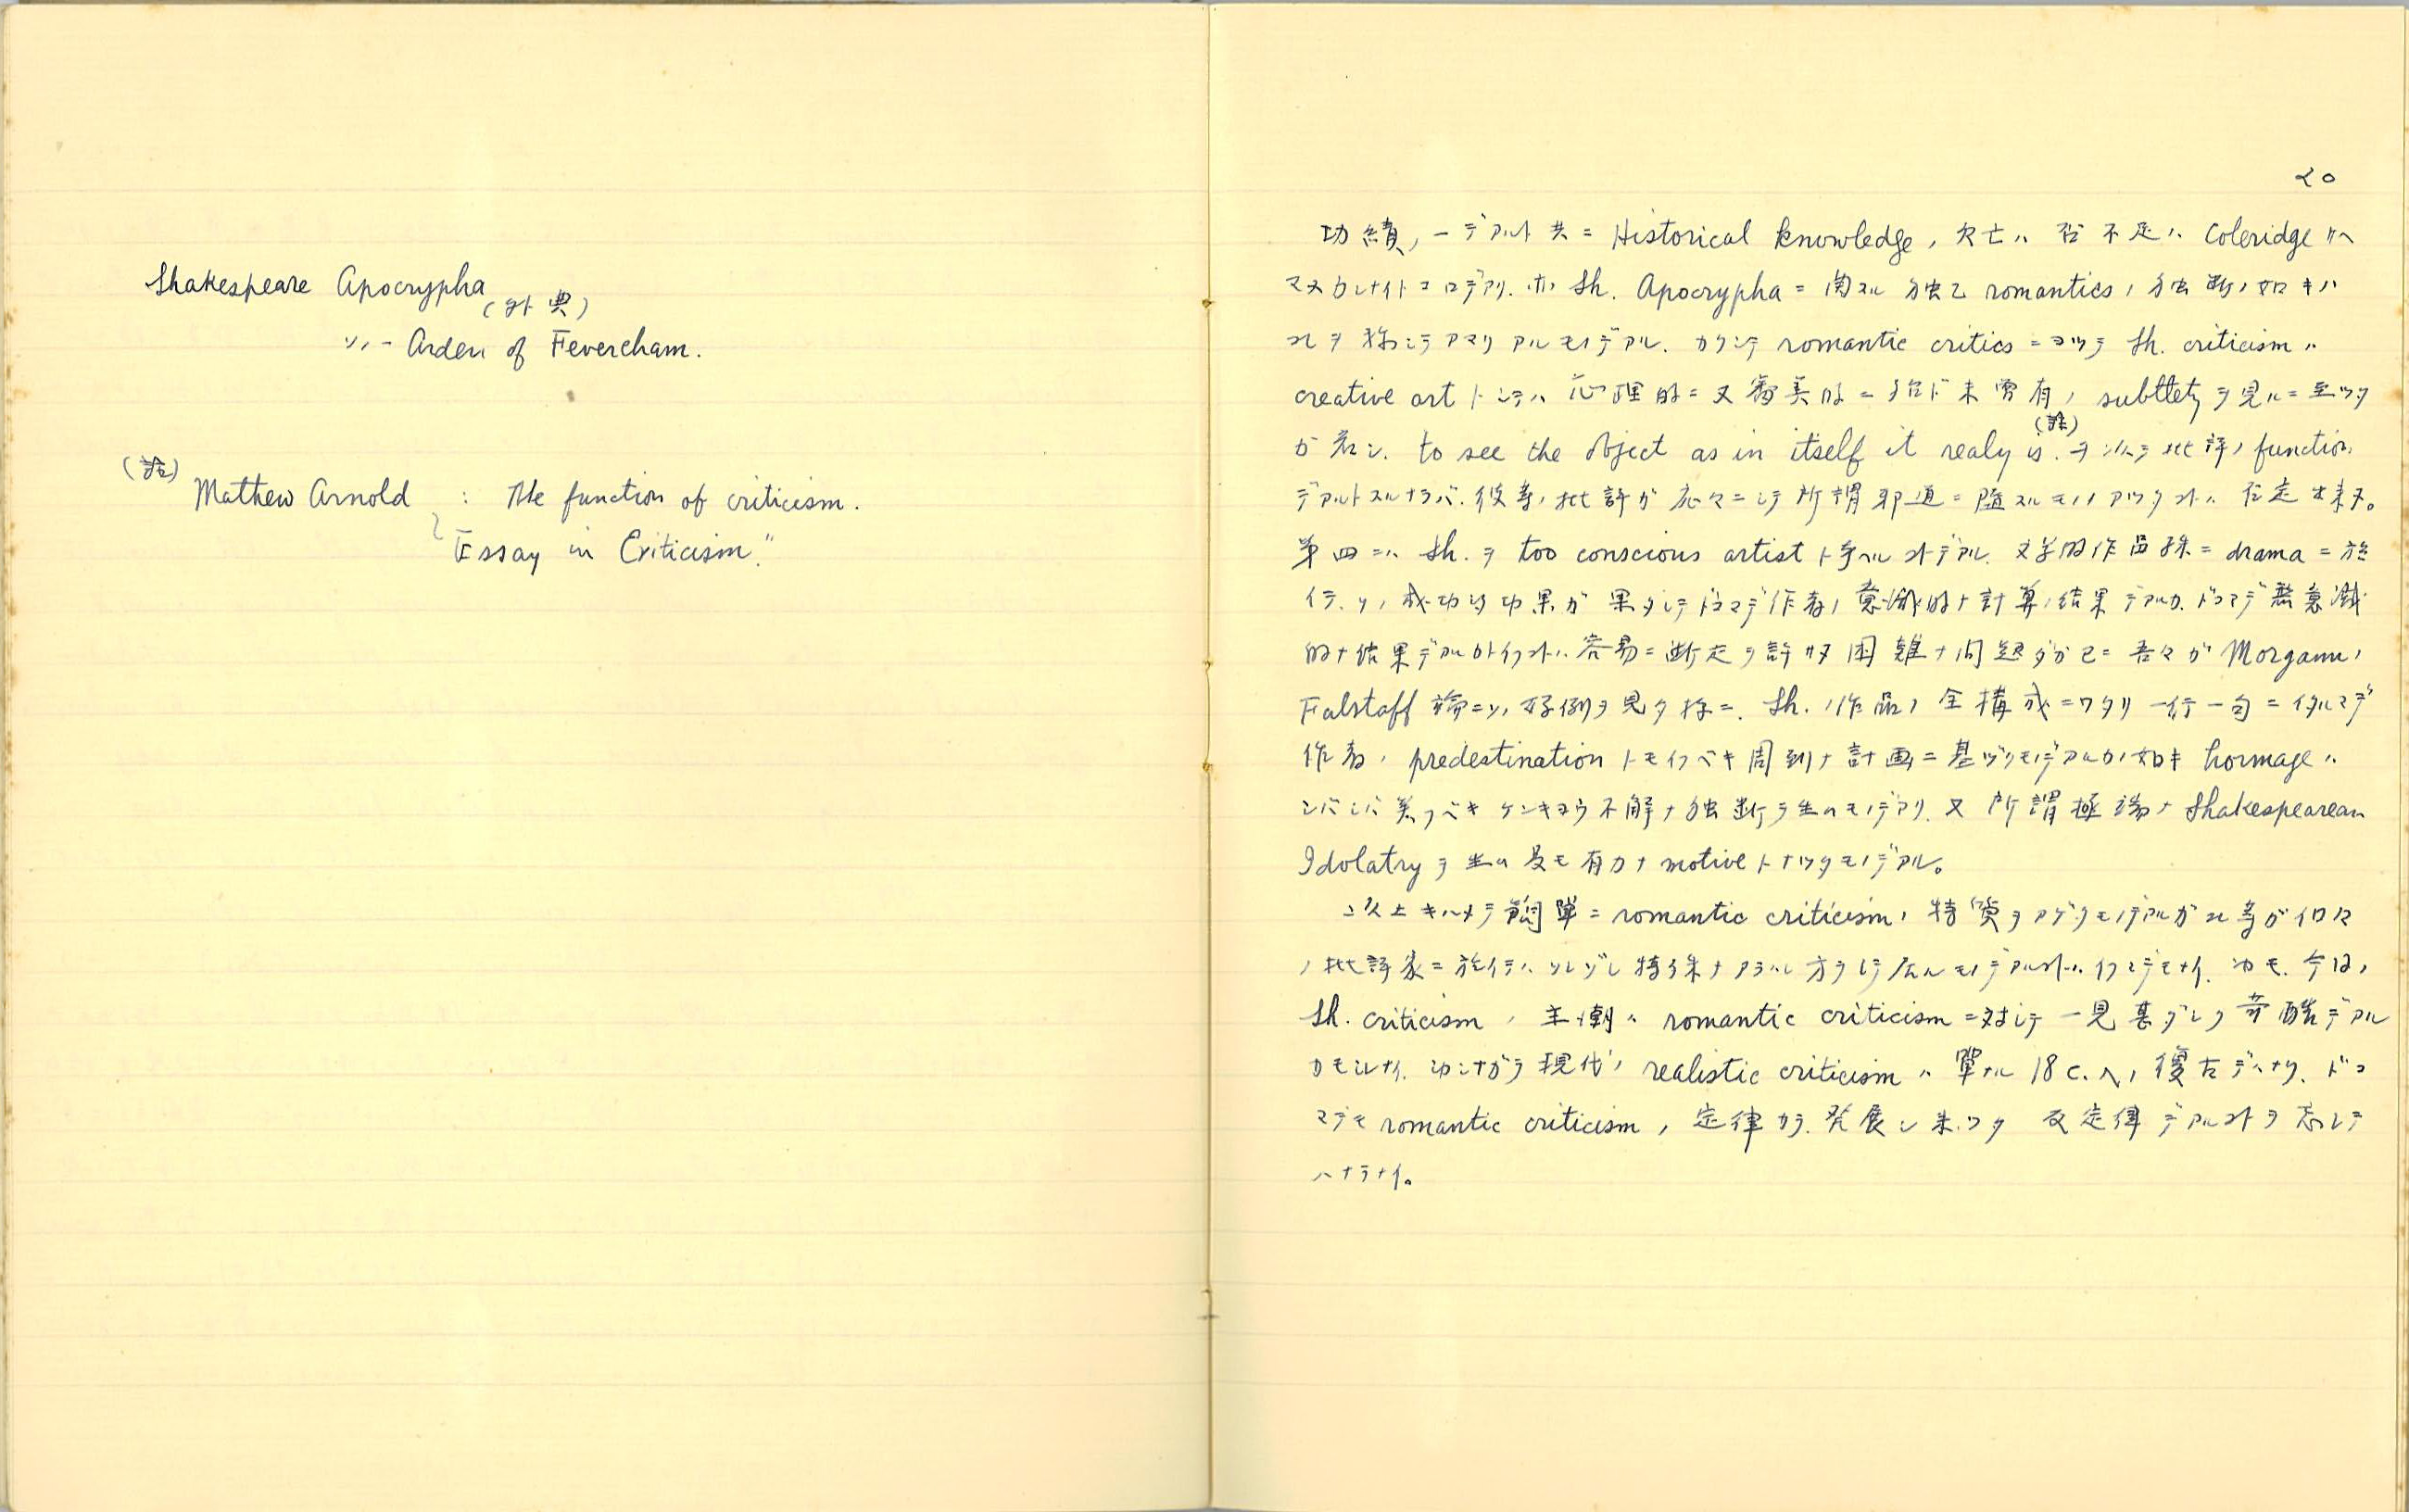 Shakespeare Apocrypha
(外典)
ソノ一 Arden of Fevercham.
(註)
Mathew Arnold : The function of criticism.
"Essay in Criticism."
20
功績ノ一デアルト共ニ Historical knowledge ノ欠亡ハ 否不足ハ Coleridge サヘ
マヌカレナイトコロデアリ. 亦 Sh. Apocrypha ニ関スル独乙 romantics ノ独断ノ如キハ
ヲ称シテアマリアルモノデアル. カクシテ romantic critics ニヨツテ Sh. criticism ハ
creative art トシテハ 心理的ニ又審美的ニ殆ド未曾有ノ subtlety ヲ見ルニ至ツタ
が 若シ. to see the object as in itself it realy is. (註) ヲ以テ批評ノ function
デアルトスルナラバ. 彼等ノ批評ガ 応々ニシテ所謂邪道ニ堕スルモノノアツタコトハ 否定出来ヌ。
第四ニハ Sh. ヲ too conscious artist ト考ヘルコトデアル. 文学的作品殊ニ drama ニ於
イテ. ソノ成功的功果ガ果タシテドコマデ作者ノ意識的ナ計算ノ結果デアルカ. ドコマデ無意識
的ナ結果デアルカトイフコトハ. 容易ニ断定ヲ許サヌ困難ナ問題ダガ已ニ吾々ガ Morgann ノ
Falstaff 論ニソノ好例ヲ見タ様ニ. Sh. ノ作品ノ全構成ニワタリ一行一句ニイタルマデ
作者ノ predestination トモイフベキ周到ナ計画ニ基ヅクモノデアルカノ如キ hormage ハ
シバシバ笑フベキケンキヨウ不解ナ独断ヲ生ムモノデアリ. 又所謂極端ナ Shakespearean
Idolatry ヲ生ム最モ有力ナ motive トナツタモノデアル。
以上キハメテ簡単ニ romantic criticism ノ特質ヲアゲタモノデアルガ等ガ個々
ノ批評家ニ於イテハソレゾレ特殊ナアラハレ方ヲシテ居ルモノデアルコトハイフマデモナイ. 尚モ. 今日ノ
Sh. criticism ノ主潮ハ romantic criticism ニ対シテ一見甚ダシク苛酷デアル
カモシレナイ. シカシナガラ現代ノ realistic criticism ハ単ナル 18 c. ヘノ復古デハナク. ドコ
マデモ romantic criticism ノ定律カラ. 発展シ来ツタ 反定律デアルコトヲ忘レテ
ハナラナイ。